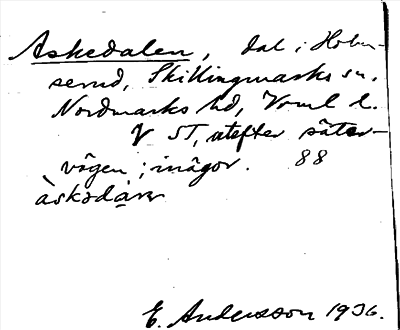 Askedalen, dal i Holm-
serud, Skillingmarks sn,
Nordmarks hd, Vrml l.
V ST, utefter säter-
vägen; inägor. 88
àskədàrər
E. Andersson 1936.